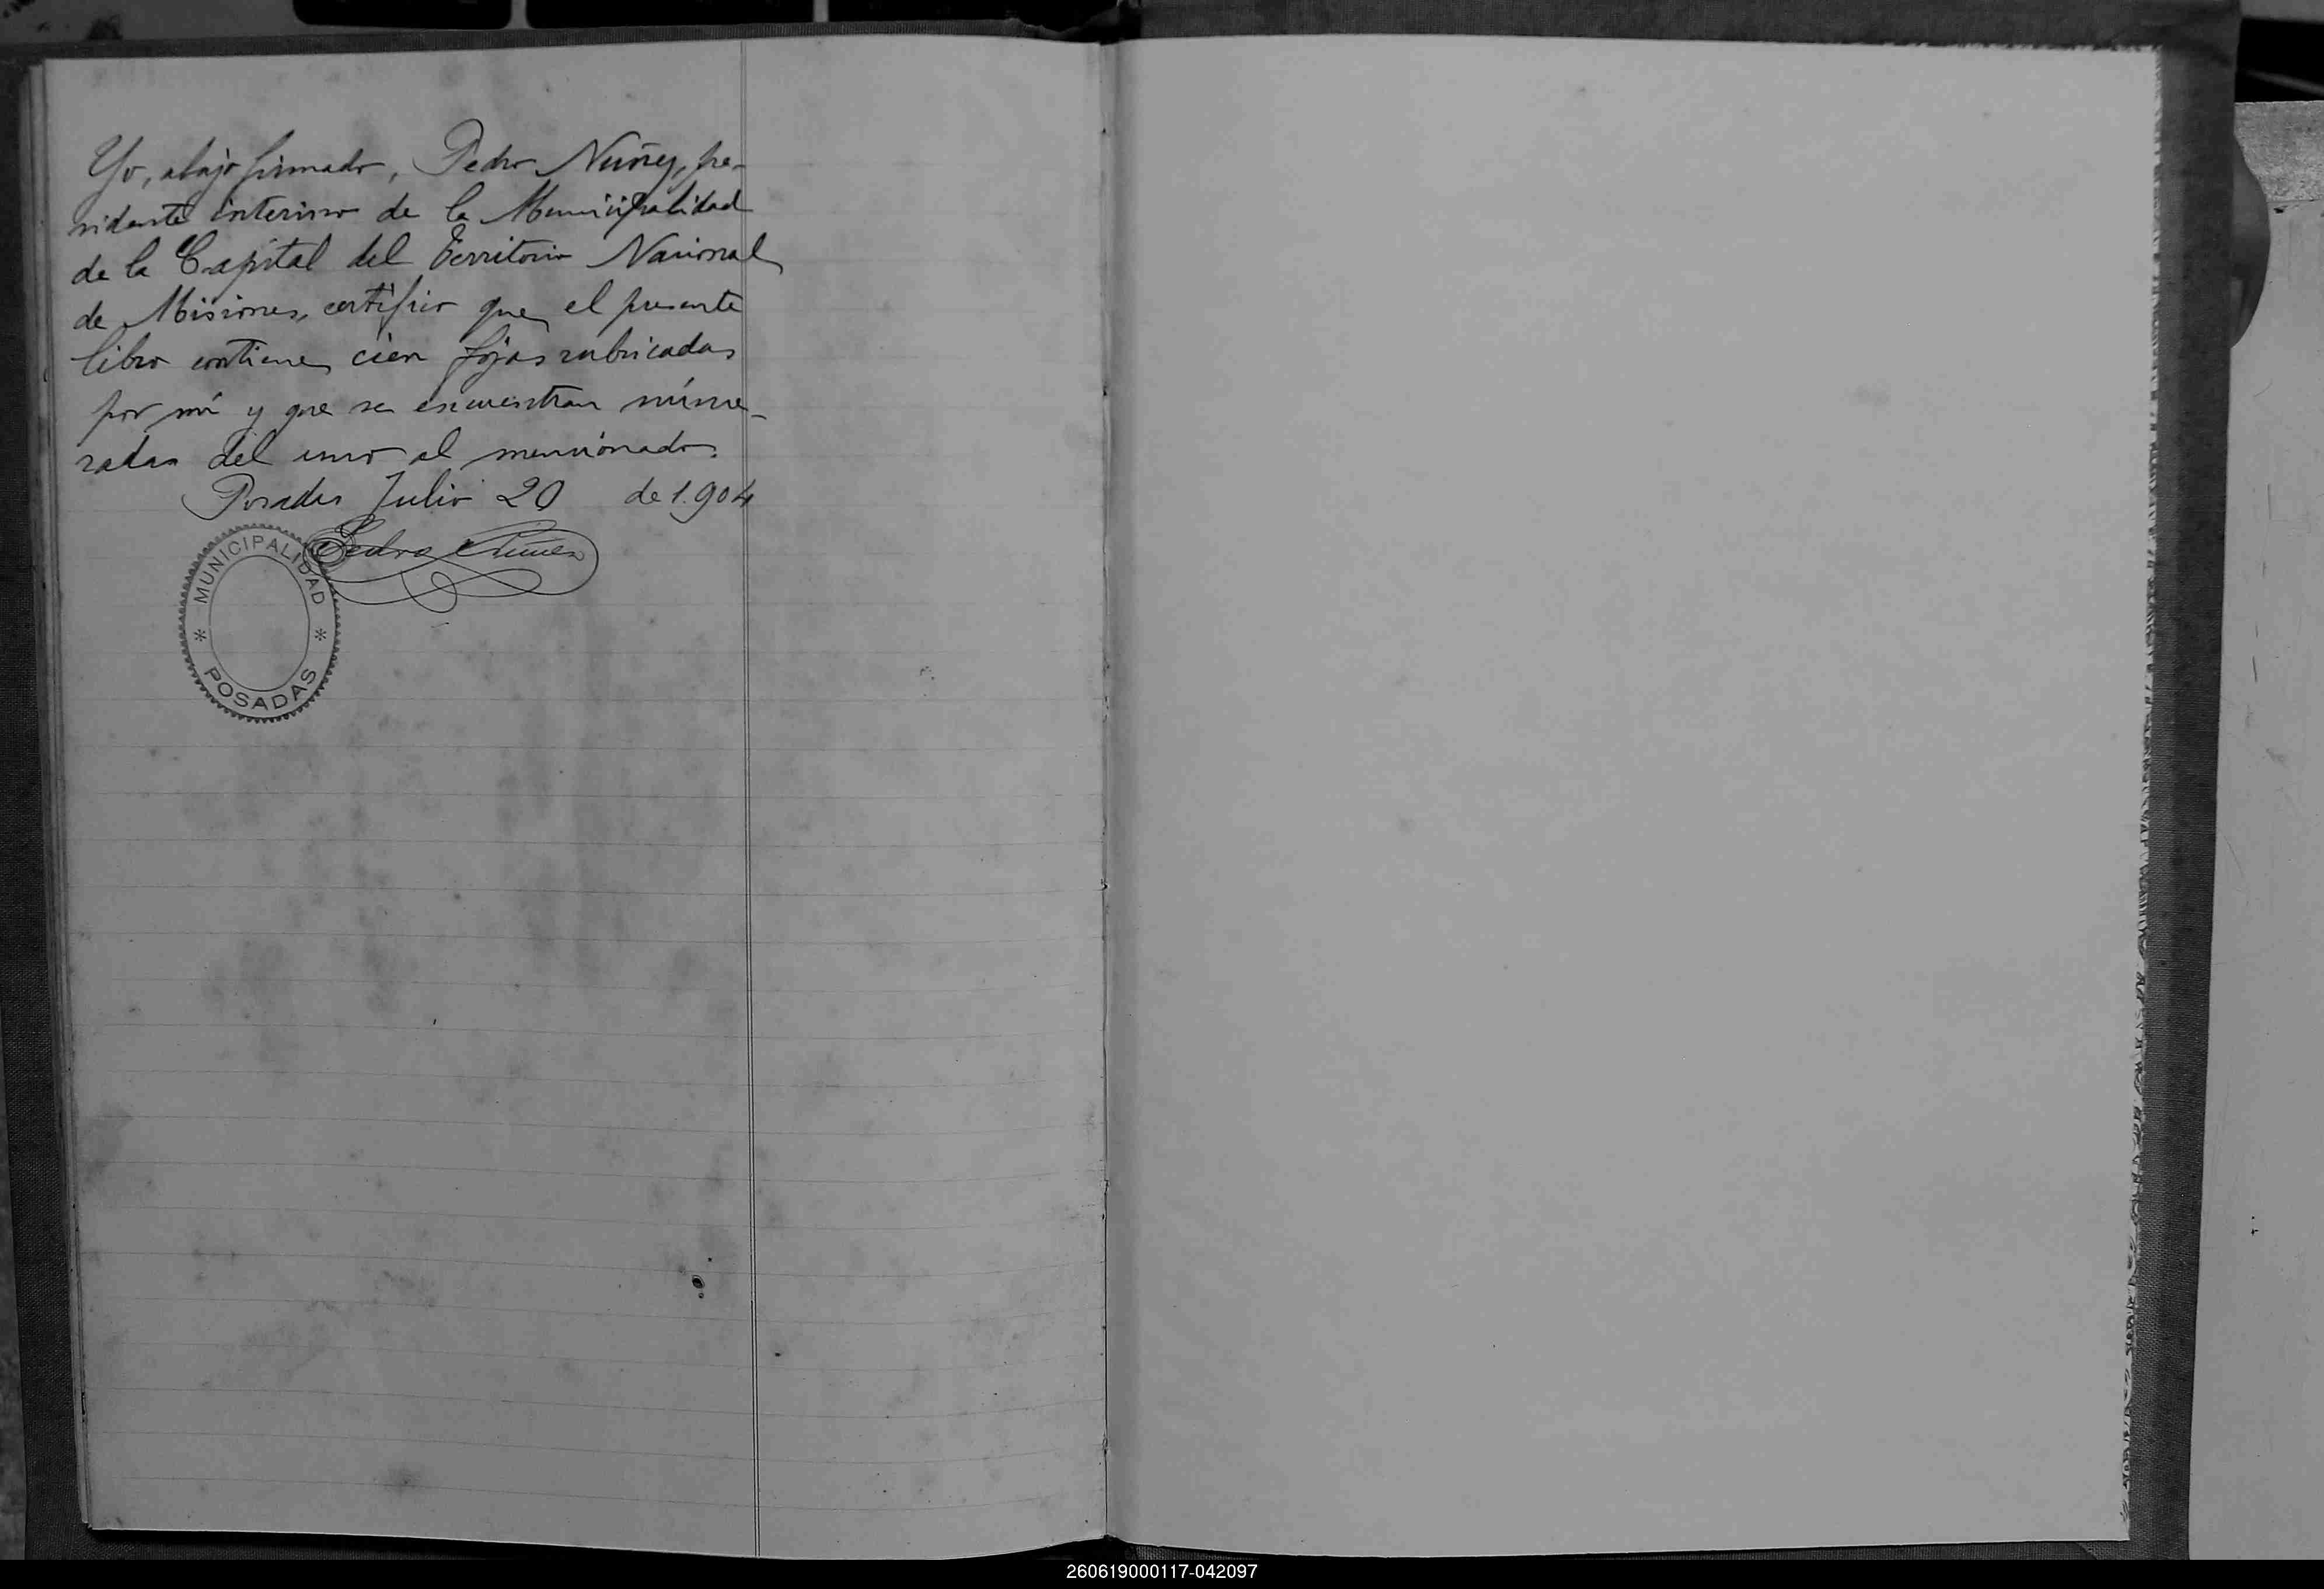 Yo, abajo firmado, Pedro Nuñez, pre-
sidente interino de la Municipalidad
de la Capital del Territorio Nacional
de Misiones, certifico que el presente
libro contiene cien fojas rubricadas
por mí y que se encuentran núme-
radas del uno al mencionado.
Posadas Julio 20 de 1.904
Pedro Nuñez
MUNICIPALIDAD
POSADAS
260619000117-042097